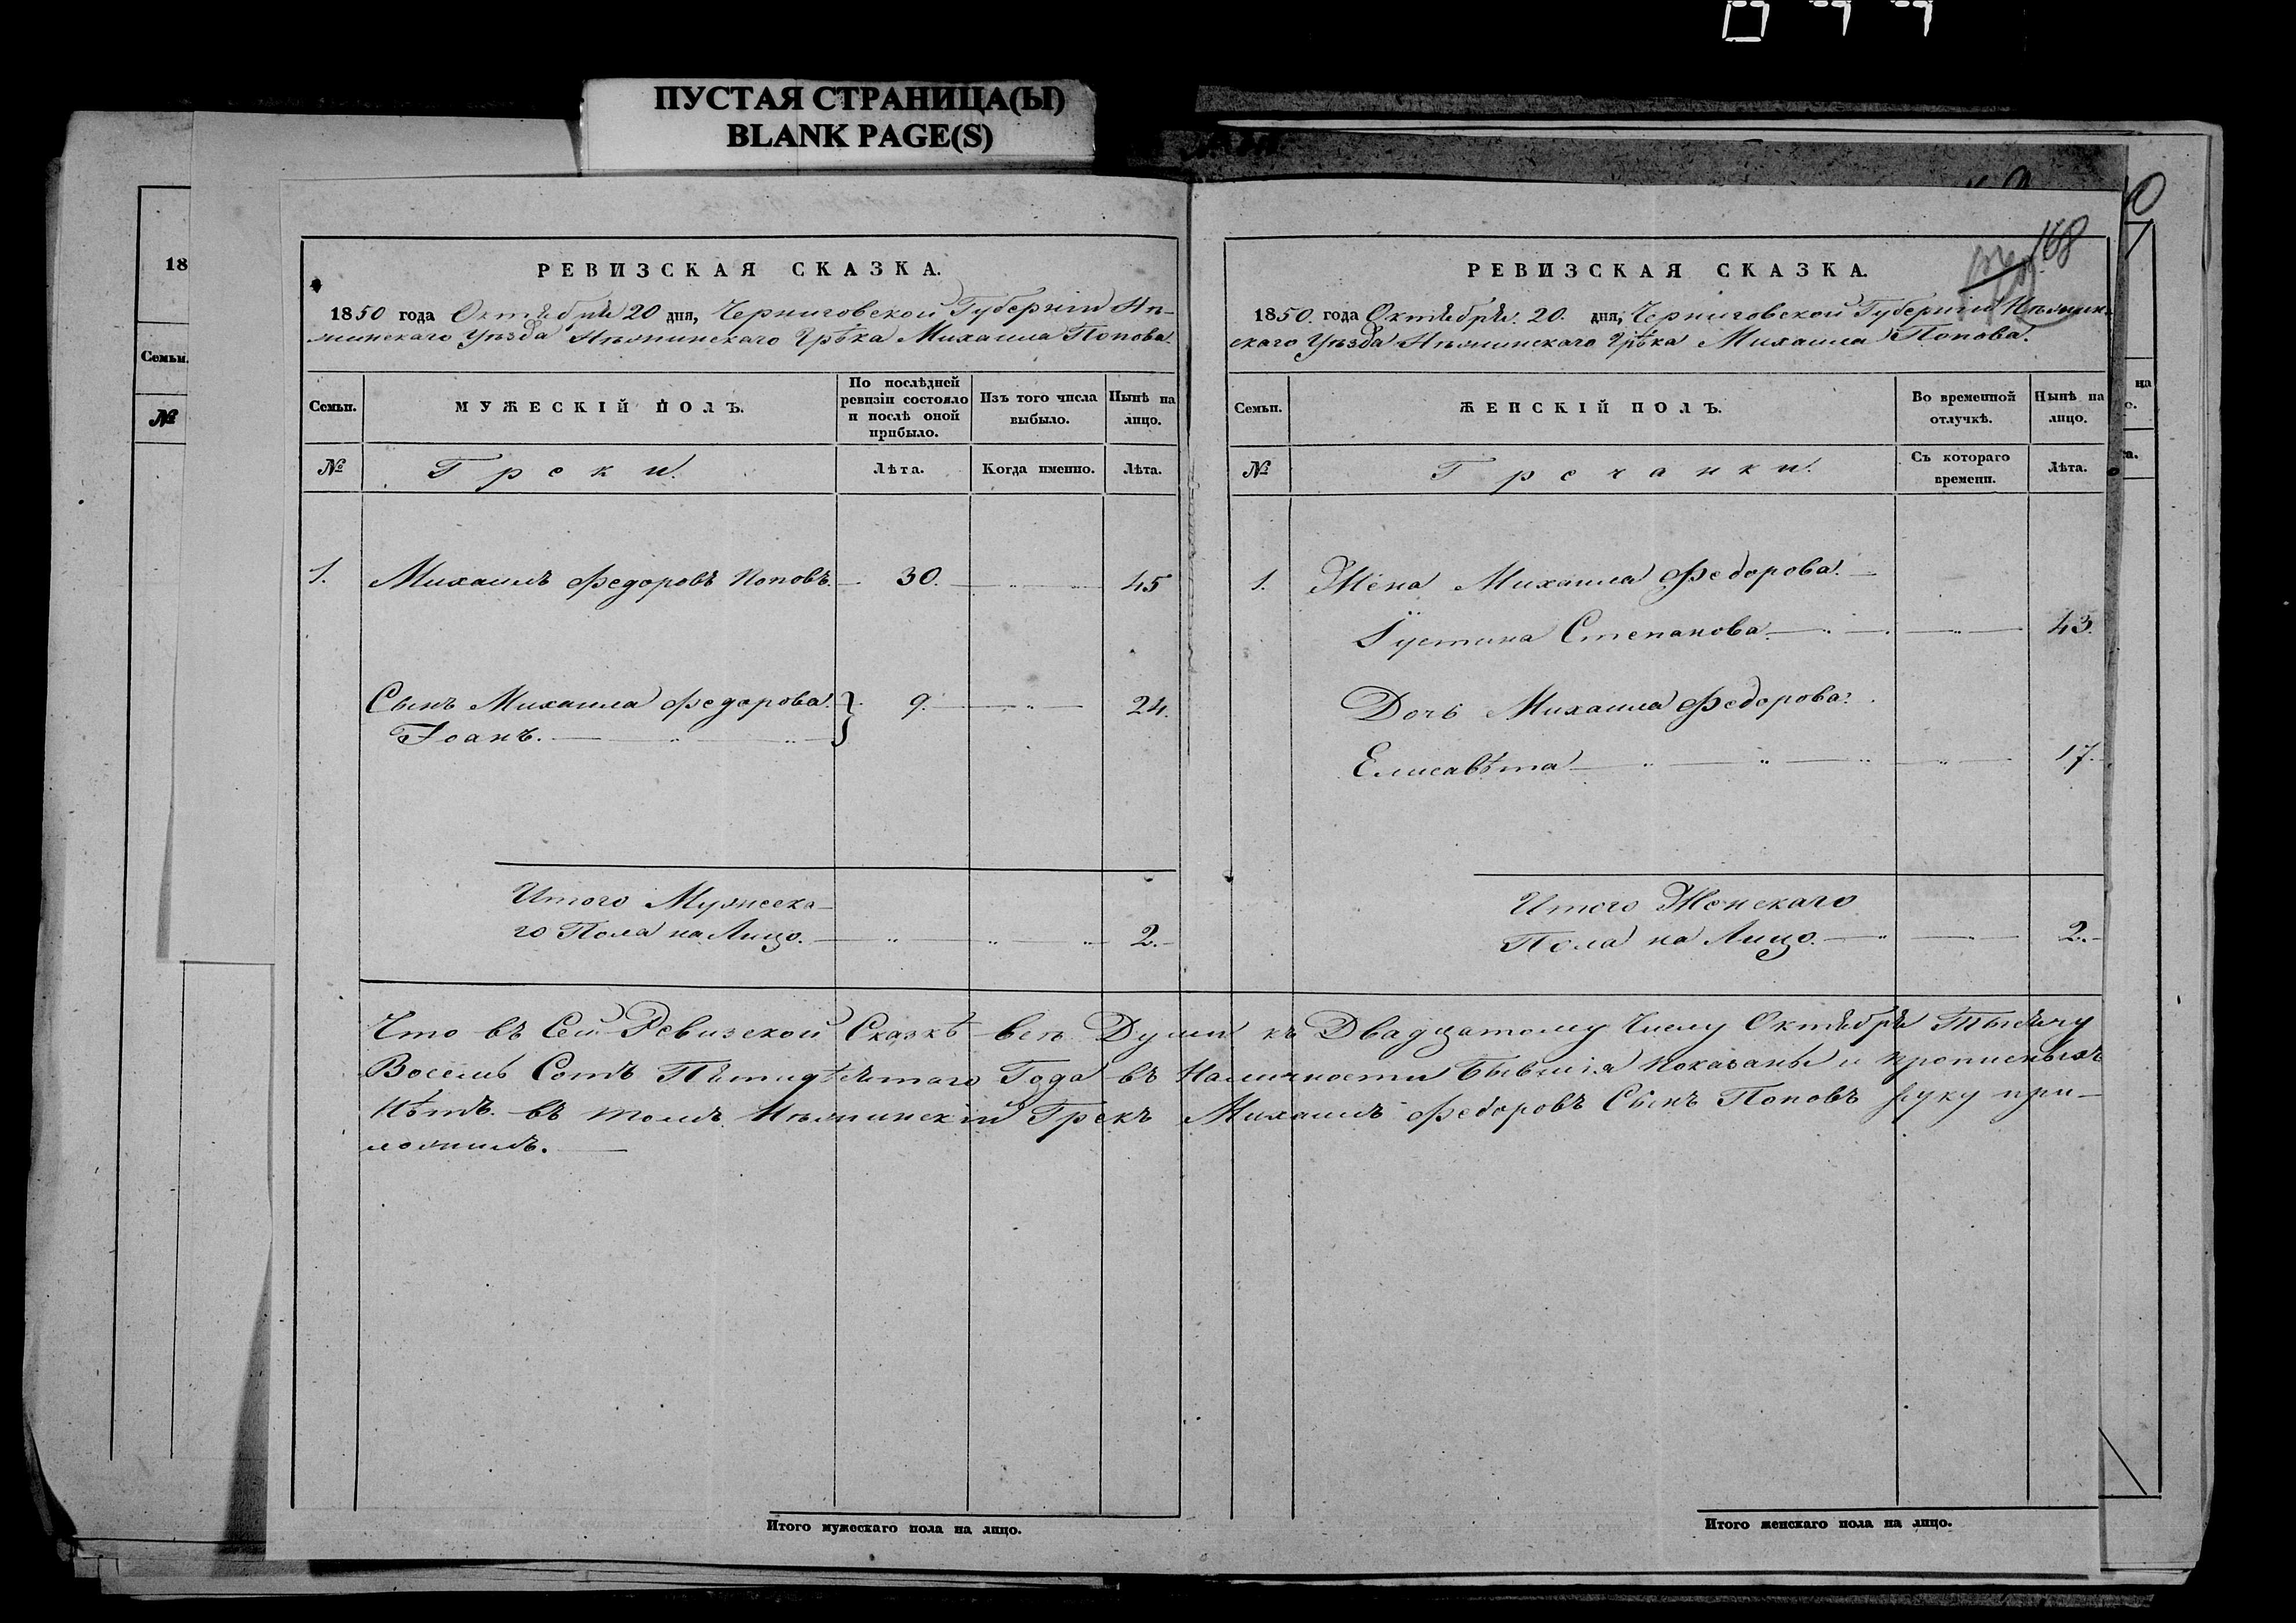 ПУСТАЯ СТРАНИЦА(Ы)
BLANK PAGE(S)
18
Семьи.
№
РЕВИЗСКАЯ СКАЗКА.
1850 года Октября 20 дня, Черниговской Губернiи Нѣ-
жинскаго Уѣзда Нѣжинскаго Грѣка Михаила Попова.
Семьи.
МУЖЕСКІЙ ПОЛЪ.
По послѣдней
ревизіи состояло
и послѣ оной
прибыло.
Изъ того числа
выбыло.
Нынѣ на
лицо.
№
Греки.
Лѣта.
Когда именно.
Лѣта.
1. Михаилъ Федоровъ Поповъ. 30. 45
Сынъ Михаила Федорова. 9. 24.
Іоанъ.
Итого Мужеска-
го Пола на Лицо. 2.
168
РЕВИЗСКАЯ СКАЗКА.
1850. года Октября. 20. дня, Черниговской Губернiи Нѣжин-
скаго Уѣзда Нѣжинскаго Грѣка Михаила Попова.
Семьи.
ЖЕНСКІЙ ПОЛЪ.
Во временной
отлучкѣ.
Нынѣ на
лицо.
№
Гречанки.
Съ котораго
времени.
Лѣта.
1. Жена Михаила Федорова.
Іустина Степанова. 43.
Дочь Михаила Федорова.
Елисавѣта 17.
Итого Женскаго
Пола на Лицо. 2.
Что въ Сей Ревизской Сказкѣ всѣ Души къ Двадцатому Числу Октября Тысячу
Восемь Сотъ Пятидесятаго Года въ Наличности бывшiя показаны и прописныхъ
нѣтъ. въ томъ Нѣжинскiй Грекъ Михаилъ Федоровъ Сынъ Поповъ руку при-
ложилъ.
Итого мужескаго пола на лицо.
Итого женскаго пола на лицо.